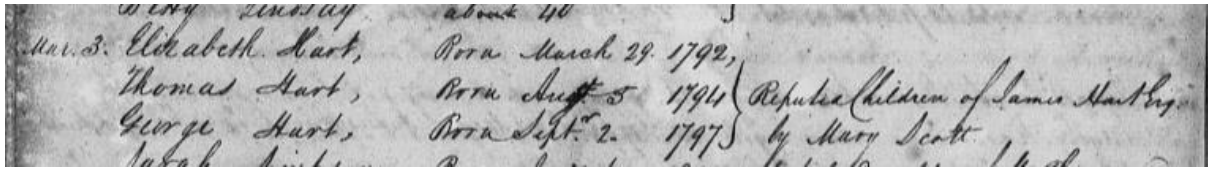 Betty Lindsay about 40
Mar. 3. Elizabeth Hart, Born March 29. 1792,
Thomas Hart, Born Augt. 5 1794 Reputed Children of James Hart Esq.
George Hart, Born Septr. 2. 1797 by Mary Scott
Sarah